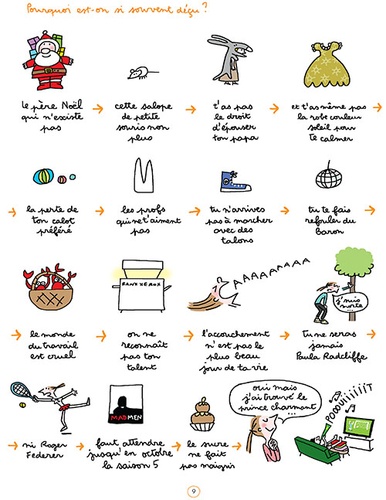 Pourquoi est-on si souvent déçu ?
le père Noël
qui n'existe
pas
cette salope
de petite
souris non
plus
t'as pas
le droit
d'épouser
ton papa
et t'as même pas
la robe couleur
soleil pour
te calmer
la perte de
ton calot
préféré
les profs
qui ne t'aiment
pas
tu n'arrives
pas à marcher
avec des
talons
tu te fais
refouler du
Baron
le monde
du travail
est cruel
SANX EAUX
on ne
reconnaît
pas ton
talent
AAAAAAAAA
l'accouchement
n'est pas le
plus beau
jour de ta vie
j'suis
morte
tu ne seras
jamais
Paula Radcliffe
ni Roger
Federer
MADMEN
faut attendre
jusqu'en octobre
la saison 5
le sucre
ne fait
pas maigrir
oui mais
j'ai trouvé le
prince charmant
POOOUIIIIIIT
9